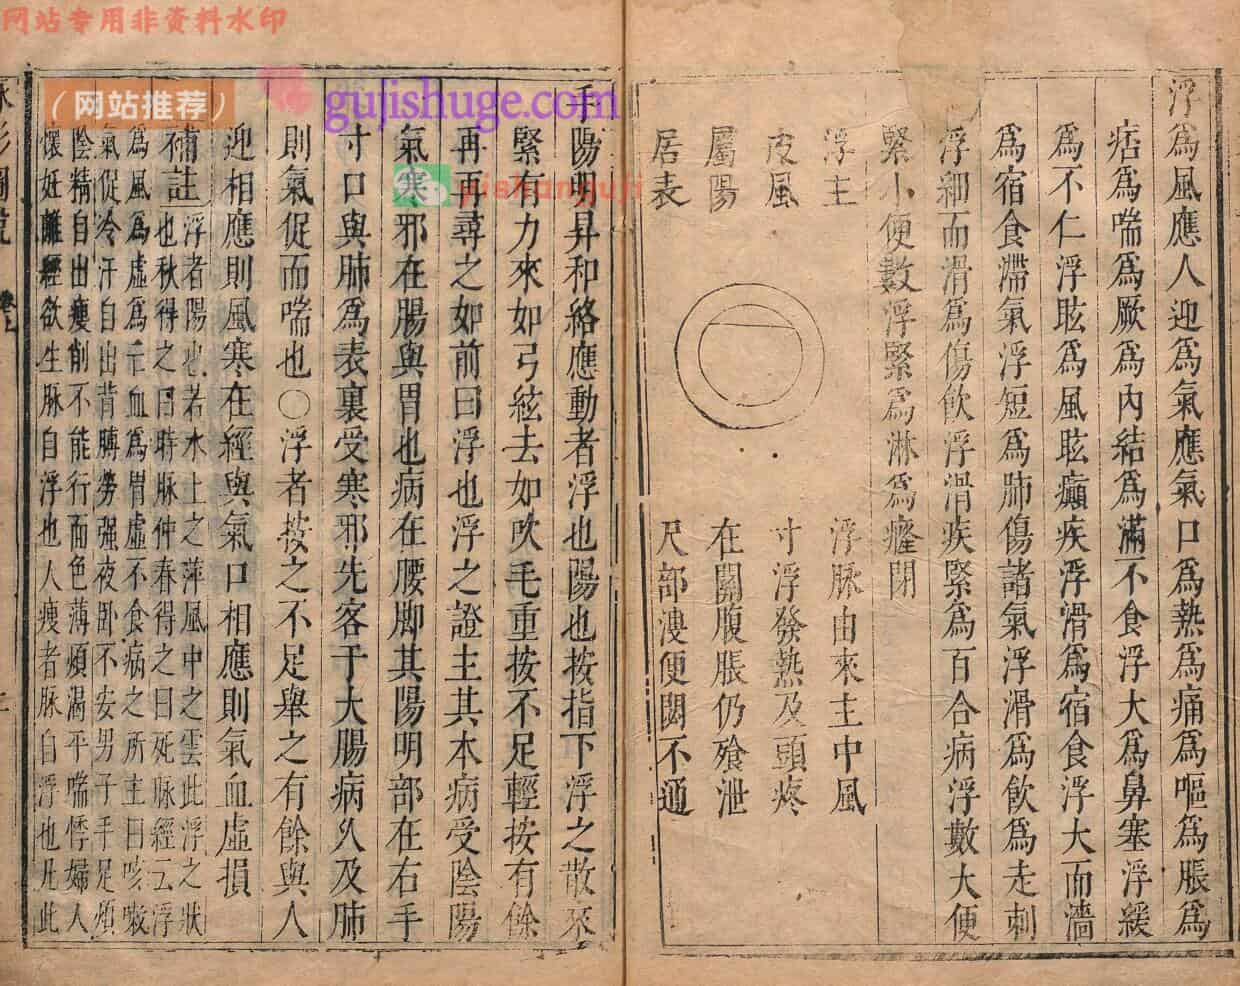 网站专用非资料水印
（网站推荐）
gujishuge.com
jishanguji
浮爲風應人迎爲氣應氣口爲熱爲痛爲嘔爲脹爲
痞爲喘爲厥爲內結爲滿不食浮大爲鼻塞浮緩
爲不仁浮眩爲風眩癲疾浮滑爲宿食浮大而濇
爲宿食滯氣浮短爲肺傷諸氣浮滑爲飲爲走刺
浮細而滑爲傷飲浮滑疾緊爲百合病浮數大便
緊小便數浮緊爲淋爲癃閉
浮主
皮風
屬陽
居表
浮脉由來主中風
寸浮發熱及頭疼
在關腹脹仍飱泄
尺部溲便閟不通
手陽明昇和絡應動者浮也陽也按指下浮之散來
緊有力來如弓絃去如吹毛重按不足輕按有餘
再再尋之如前曰浮也浮之證主其本病受陰陽
氣寒邪在腸與胃也病在腰脚其陽明部在右手
寸口與肺爲表裏受寒邪先客于大腸病久及肺
則氣促而喘也○浮者按之不足舉之有餘與人
迎相應則風寒在經與氣口相應則氣血虛損
補註
浮者陽也若水上之萍風中之雲此浮之狀
也秋得之曰時脉仲春得之曰死脉經云浮
爲風爲虛爲二血爲胃虛不食病之所主曰咳嗽
氣促冷汗自出背膊勞强夜卧不安男子手足煩
陰精自出瘦削不能行面色薄煩渴平喘悸婦人
懷妊離經欲生脉自浮也人瘦者脉自浮也凡此
脉影圖說
卷上
二